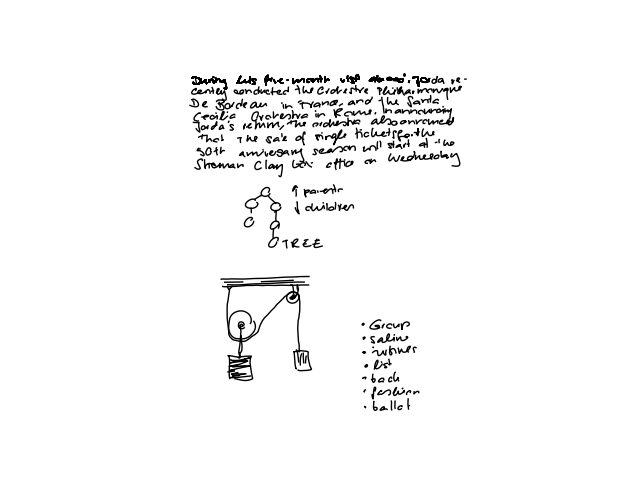 During his five-month visit abroad, Jorda re-
cently conducted the Orchestre Philharmonique
De Bordeau in France, and the Santa
Cecilia Orchestra in Rome. In announcing
Jorda's return, the orchestra also announced
that the sale of single tickets for the
50th anniversary season will start at the
Sherman Clay box office on Wednesday
↑ parents
↓ children
TREE
• Group
• saline
• list
• back
• fashion
• ballot